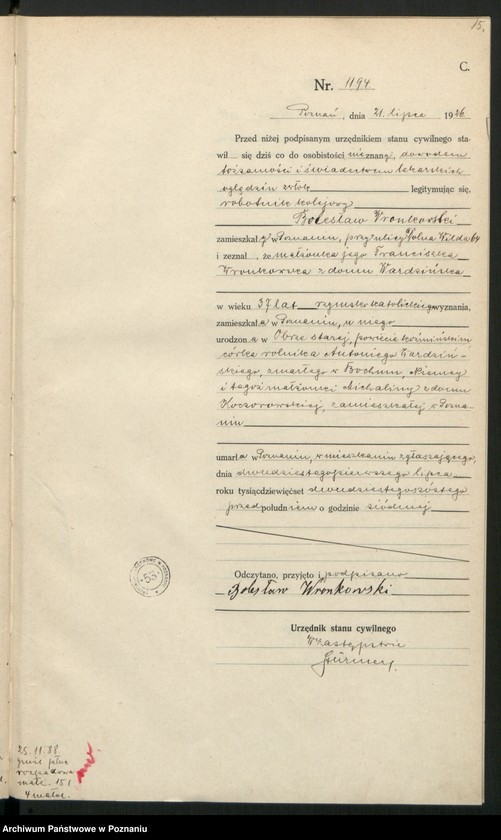 15.
C.
Nr. 1194
Poznań, dnia 21. lipca 1926
Przed niżej podpisanym urzędnikiem stanu cywilnego sta-
wił się dziś co do osobistości nieznany, dowodem
tożsamości i świadectwem lekarskich
oględzin zwłok legitymując się,
robotnik kolejowy
Bolesław Wronkowski
zamieszkały w Poznaniu, przy ulicy Polna Wilda 64
i zeznał, że małżonka jego Franciszka
Wronkowska z domu Wardzińska
w wieku 37 lat rzymsko katolickiego wyznania,
zamieszkała w Poznaniu, u niego
urodzona w Obrze starej, powiecie koźmińskim
córka rolnika Antoniego Wardziń-
skiego, zmarłego w Bochum, Niemcy
i tegoż małżonki Michaliny z domu
Koczorowskiej, zamieszkałej w Pozna-
niu
umarła w Poznaniu, w mieszkaniu zgłaszającego,
dnia dwudziestego pierwszego lipca
roku tysiącdziewięćset dwudziestego szóstego
przed południem o godzinie siódmej
Odczytano, przyjęto i podpisano
Bolesław Wronkowski
Urzędnik stanu cywilnego
W zastępstwie
25.11.38.
małż. 151
Archiwum Państwowe w Poznaniu